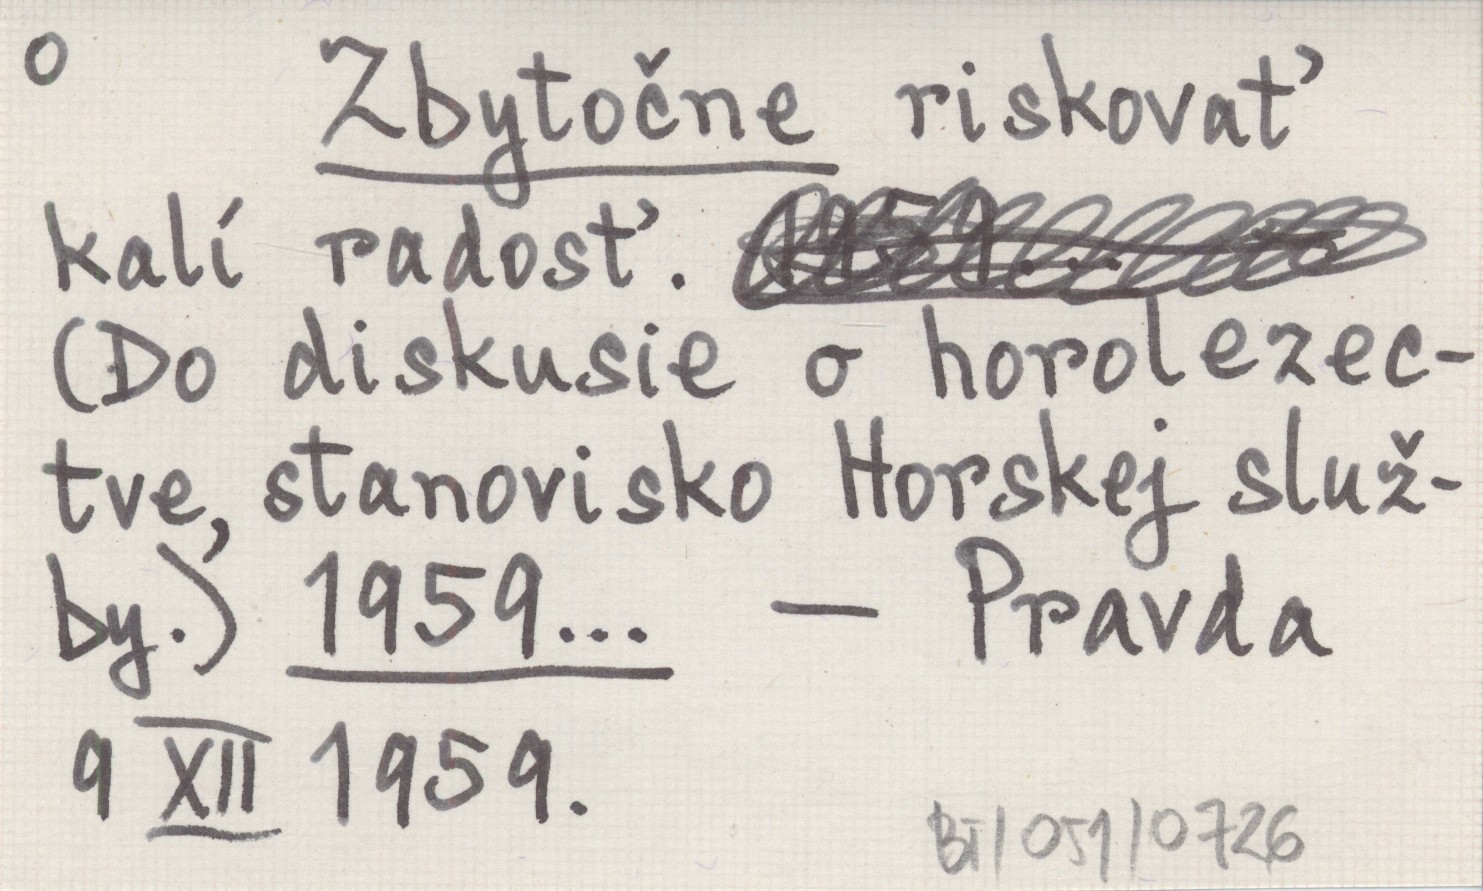 o Zbytočne riskovať
kalí radosť. 1959...
(Do diskusie o horolezec-
tve, stanovisko Horskej služ-
by.) 1959... — Pravda
9 XII 1959.
BI/051/0726